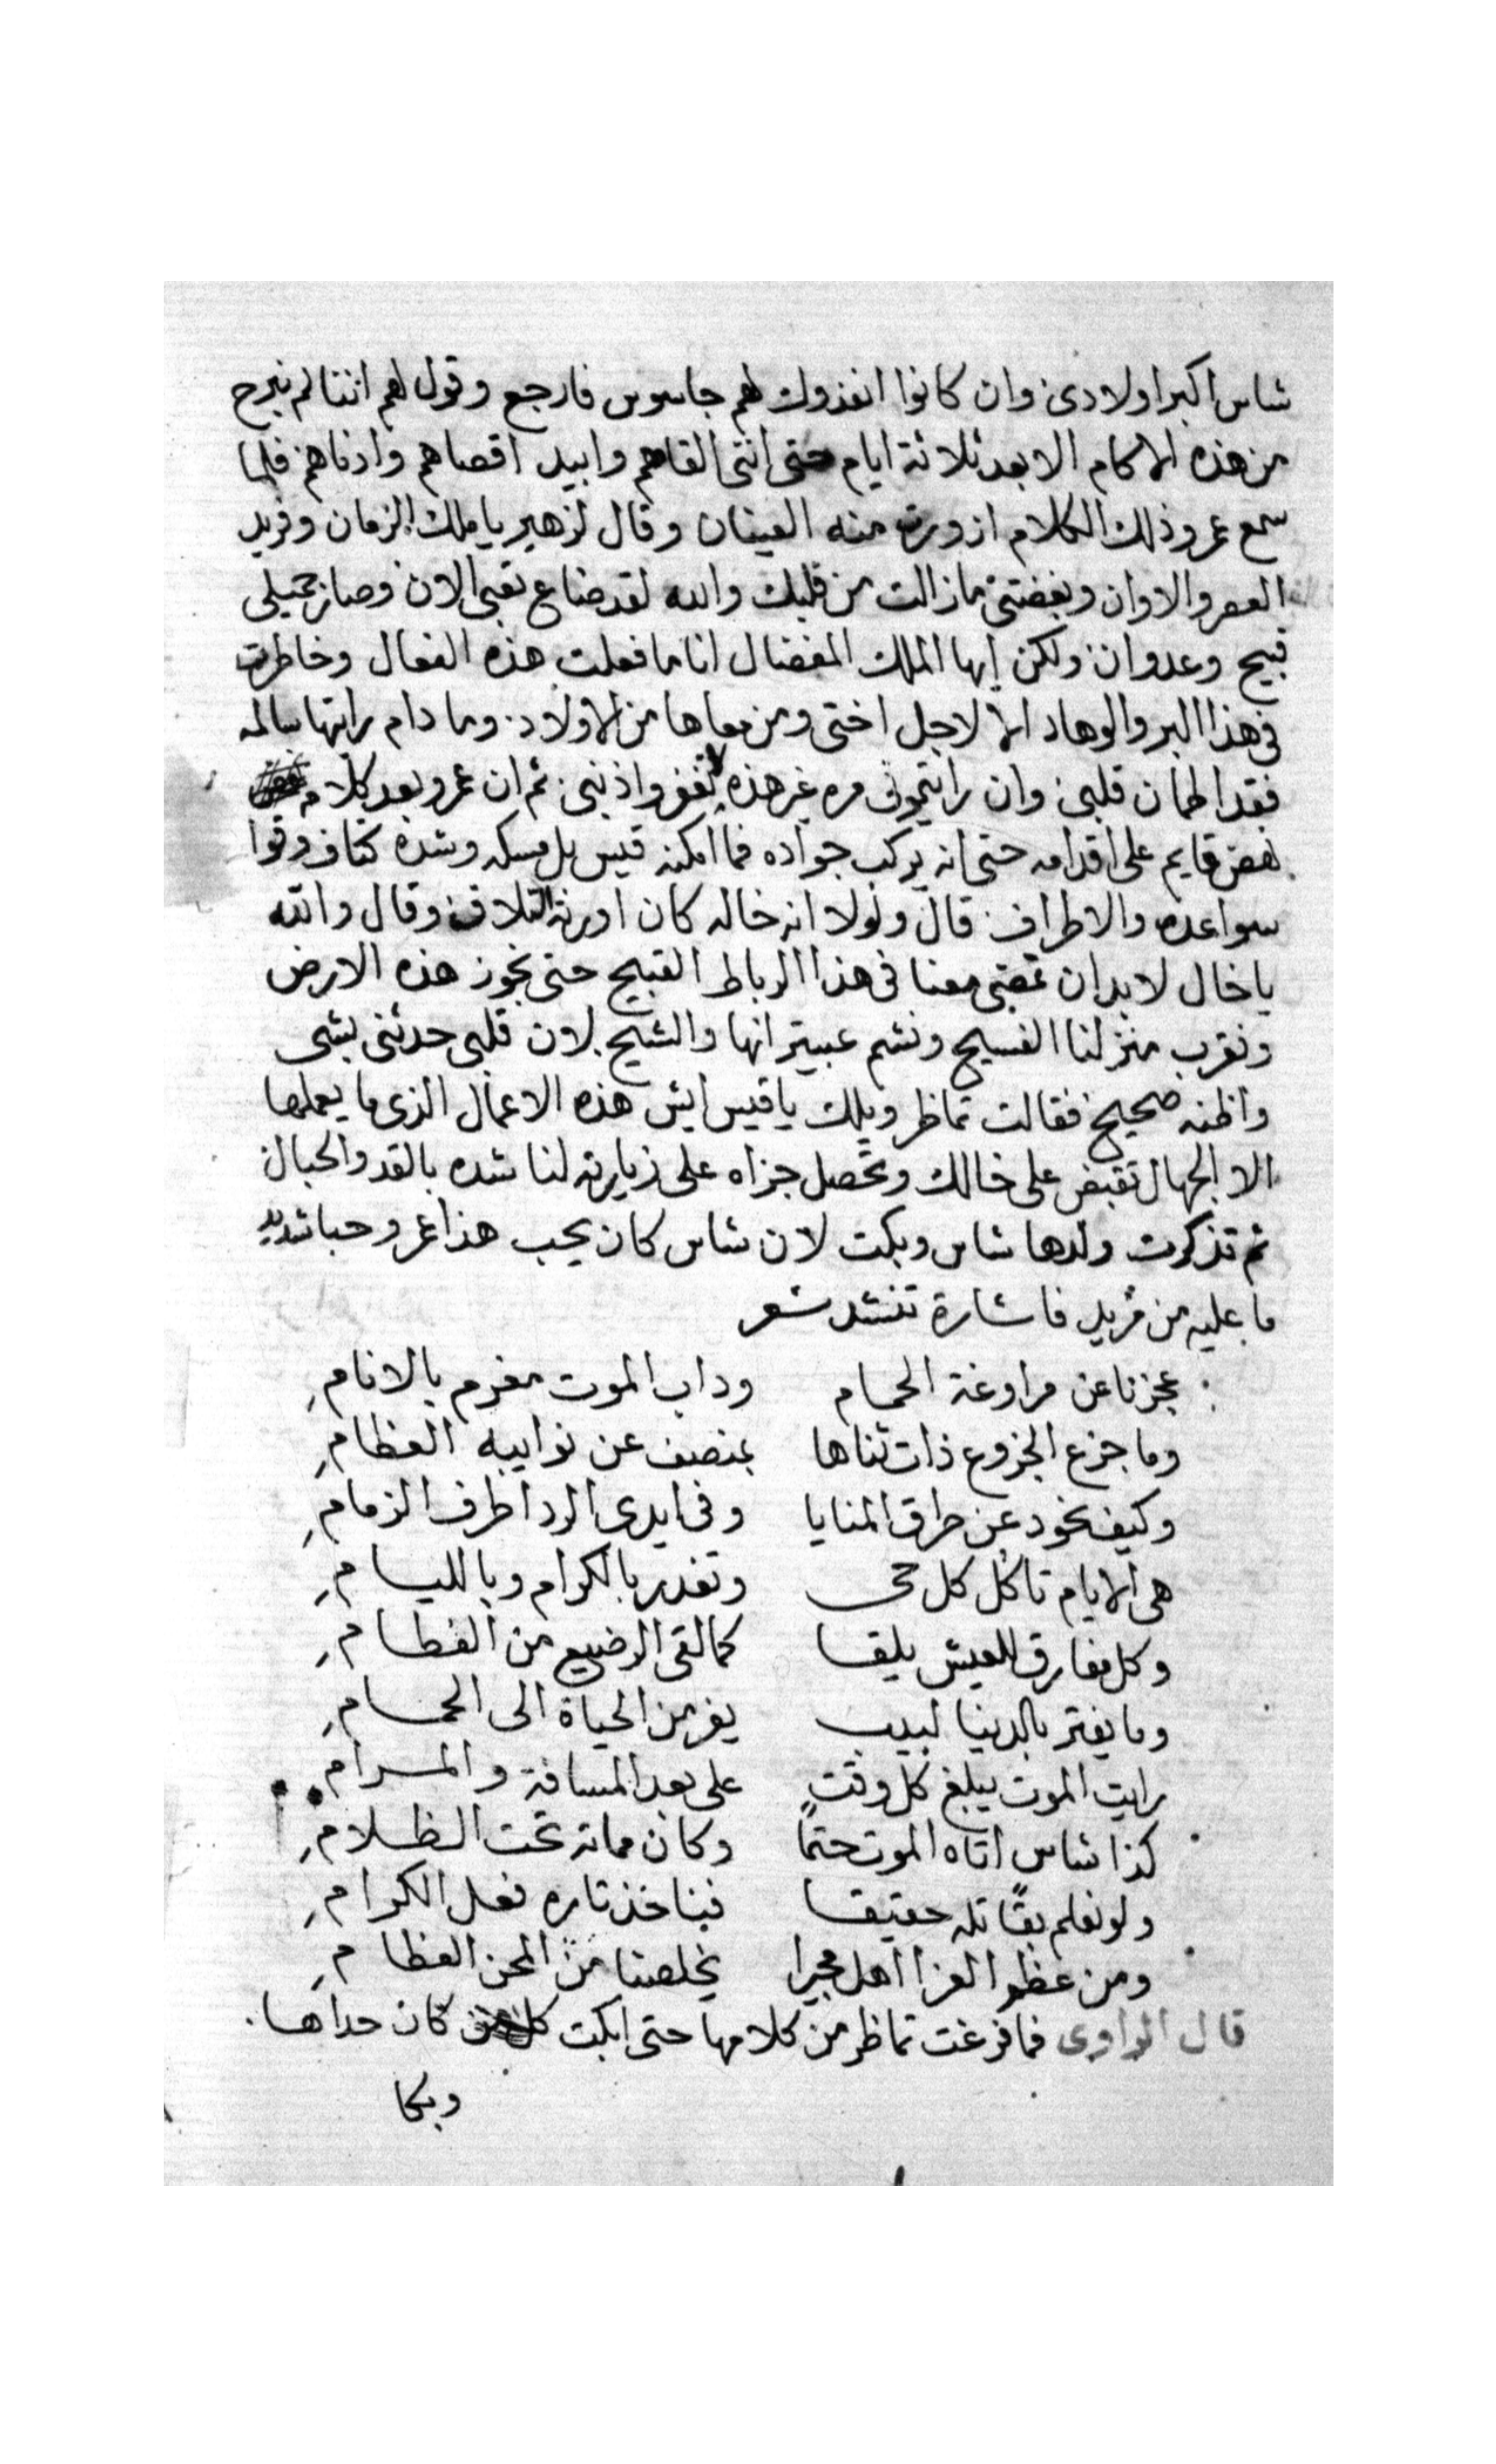 شاس اكبر اولادى وان كانوا انفذوك لهم جاسوس فارجع وقول لهم اننا لم نبرح
من هذه الاكام الا بعد ثلاثة ايام حتى اننى القاهم وابيد اقصاهم وادناهم فلما
سمع عمرو ذلك الكلام ازورت منه العينان وقال لزهير يا ملك الزمان وفريد
العصر والاوان وبغضتى ما زالت من قلبك والله لقد ضاع تعبى الان وصار جميلى
قبيح وعدوان ولكن ايها الملك المفضال انا ما فعلت هذه الفعال وخاطرت
فى هذا البر والوهاد الا لاجل اختى ومن معاها من الاولاد وما دام رايتها سالمه
فقد اطمان قلبى وان رايتمونى مره غير هذه لا تغفروا ذنبى ثم ان عمرو بعد كلامه
نهض قايم على اقدامه حتى انه يركب جواده فما امكنه قيس بل مسكه وشده كتاف وقوا
سواعده والاطراف قال ولولا انه خاله كان اورثه التلاف وقال والله
يا خال لا بد ان تمضى معنا فى هذا الرباط القبيح حتى نجوز هذه الارض
ونقرب منزلنا الفسيح ونشم عبيترانها والشيح لان قلبى حدثنى بشى
واظنه صحيح فقالت تماظر ويلك يا قيس ايش هذه الاعمال الذى ما يعملها
الا الجهال تقبض على خالك وتحصل جزاه على زيارته لنا شده بالقد والحبال
ثم تذكرت ولدها شاس وبكت لان شاس كان يحب هذا عمرو حبا شديد
ما عليه من مزيد فاشارة تنشد شعر
عجزنا عن مراوغة الحمام وداب الموت مغرم بالانام
وما جزع الجزوع ذات تناها بمنصف عن نوايبه العظام
وكيف نحود عن طرق المنايا وفى ايدى الردا طرف الزمام
هى الايام تاكل كل حى وتغدر بالكرام وبالليام
وكل مفارق للعيش يلقا كما لقى الرضيع من الفطام
وما يغتر بالدنيا لبيب يفر من الحياة الى الحمام
رايت الموت يبلغ كل وقت على بعد المسافة والمرام
كذا شاس اتاه الموت حتما وكان مماته تحت الظلام
ولو نعلم بقاتله حقيقا فبناخذ تاره فعل الكرام
ومن عظم العزا اهل مجيرا يخلصنا من المحن العظام
قال الراوى فما فرغت تماظر من كلامها حتى ابكت كلمن كان حداها
وبكا